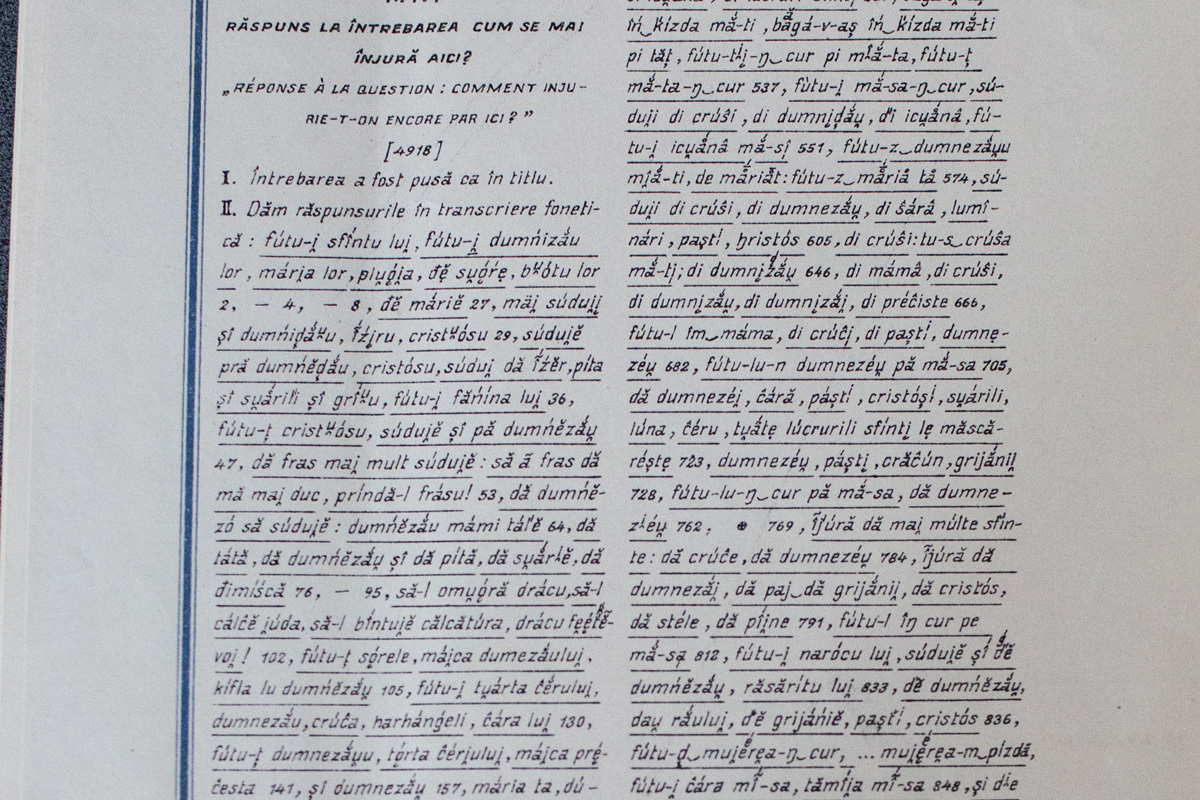 RĂSPUNS LA ÎNTREBAREA CUM SE MAI
ÎNJURĂ AICI?
„RÉPONSE À LA QUESTION : COMMENT INJU-
RIE-T-ON ENCORE PAR ICI ? ”
[4918]
I. Întrebarea a fost pusă ca în titlu.
II. Dăm răspunsurile în transcriere foneti-
că : fútu-i̯ sfîntu lui̯, fútu-i̯ dumńizắu
lor, mária lor, plu̯ói̯a, đĕ su̯óre̯, bᵘótu lor
2, – 4, – 8, đĕ máriĕ 27, măi̯ súdui̯i̯
și dumńiḑắᵘu, îźi̯ru, cristᵘósu 29, súdui̯ĕ
pră dumńĕḑắu, cristósu, súdui̯ dă îźĕr, píta
și su̯árili și grîᵘu, fútu-i̯ fắńina lui 36,
fútu-ț cristᵘósu, súdui̯ĕ și pă dumńĕzắu̯
47, dă fras mai̯ mult súdui̯ĕ : să ă fras dă
mă mai̯ duc, prindă-l frásu! 53, dă dumńĕ-
zó să súdui̯ĕ : dumńĕzắu mámi tál'ĕ 64, dă
tátă, dă dumńĕzắu̯ și dă pítă, dă su̯árĭĕ, dă
đimíścă 76, – 95, să-l omu̯óră drácu, să-l
cálcĕ i̯úda, să-l bîntui̯ĕ călcătúra, drácu
voi̯ ! 102, fútu-ț sórele, mái̯ca dumezắului̯,
kífla lu dumńĕzắu̯ 105, fútu-i̯ tu̯árta ćĕrului̯,
dumnezắu, crúća, harhánģeli, ćára lui̯ 130,
fútu-ț dumnezắu̯u, tórta ćérĭului̯, mái̯ca pré-
ćesta 141, și dumnezắu̯ 157, mária ta, dú-
în‿ḱízda mắ-ti, băgá-v-aș în‿ḱízda mắ-ti
pi tăț, fútu-tĭi̯-ŋ‿cur pi mĭắ-ta, fútu-ț
mắ-ta-ŋ‿cur 537, fútu-i̯ mắ-sa-ŋ‿cur, sú-
dui̯i di crúśi, di dumni̯ḑắu̯, d'i icu̯ánâ, fú-
tu-i̯ icu̯ánâ mắ-si̯ 551, fútu-z‿dumnezắu̯u
mĭắ-ti, de măriắt: fútu-z‿măriâ tâ 574, sú-
dui̯i di crúśi, di dumnezắu̯, di śárâ, lumî-
nári, paști̯, hristós 605, di crúśi: tu-s‿crúśa
mắ-ti; di dumni̯zắu̯ 646, di mámâ, di crúśi,
di dumni̯zắu̯, di dumni̯zắi̯, di préćiste 666,
fútu-l îm‿máma, di crúći̯, di paști̯, dumne̯-
zéu̯ 682, fútu-lu-n dumnezéu̯ pă mắ-sa 705,
dă dumnezéi̯, ćáră, páști̯, cristóși̯, su̯árili,
lúna, ćéru, tu̯áte̯ lúcrurili sfínti̯ le̯ măscă-
réște̯ 723, dumnezéu̯, páști̯, crăćún, grijắnii̯
728, fútu-lu-ŋ‿cur pă mắ-sa, dă dumne̯-
zĭéu̯ 762, ⊕ 769, îĵúră dă mai̯ múlte sfin-
te : dă crúće, dă dumnezéu̯ 784, îĵúră dă
dumnezắi̯, dă pai̯‿dă grijắnii̯, dă cristós,
dă stéle, dă pîi̯ne 791, fútu-l îŋ cur pe
mắ-sa̯ 812, fútu-i̯ narócu lui̯, súdui̯ĕ și đĕ
dumńĕzắu̯, răsărítu lui̯ 833, đĕ dumńĕzắu̯,
dau̯ rắului̯, đ'ĕ grijánĭĕ, paști̯, cristós 836,
fútu-d‿mui̯ĕre̯a-ŋ‿cur, ... mui̯ĕre̯a-m‿pízdă,
fútu-i̯ ćára mî-sa, tămî́i̯a mî-sa 848, și dĭe